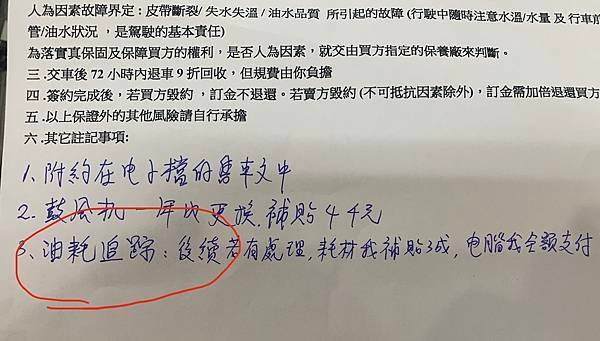 人為因素故障界定 : 皮帶斷裂/ 失水失溫 / 油水品質 所引起的故障 (行駛中隨時注意水溫/水量 及 行車前
管/油水狀況 ，是駕駛的基本責任)
為落實真保固及保障買方的權利，是否人為因素，就交由買方指定的保養廠來判斷。
三 .交車後 72 小時內退車 9 折回收，但規費由你負擔
四 .簽約完成後，若買方毀約 ，訂金不退還。若賣方毀約 (不可抵抗因素除外)，訂金需加倍退還買方
五 .以上保證外的其他風險請自行承擔
六 .其它註記事項:
1、附約在电子檔的賣車文中
2. 鼓风机 一年內更換, 補貼 4千元
3、油耗追踪：後續若有處理, 耗材我補貼3成, 电腦我全額支付